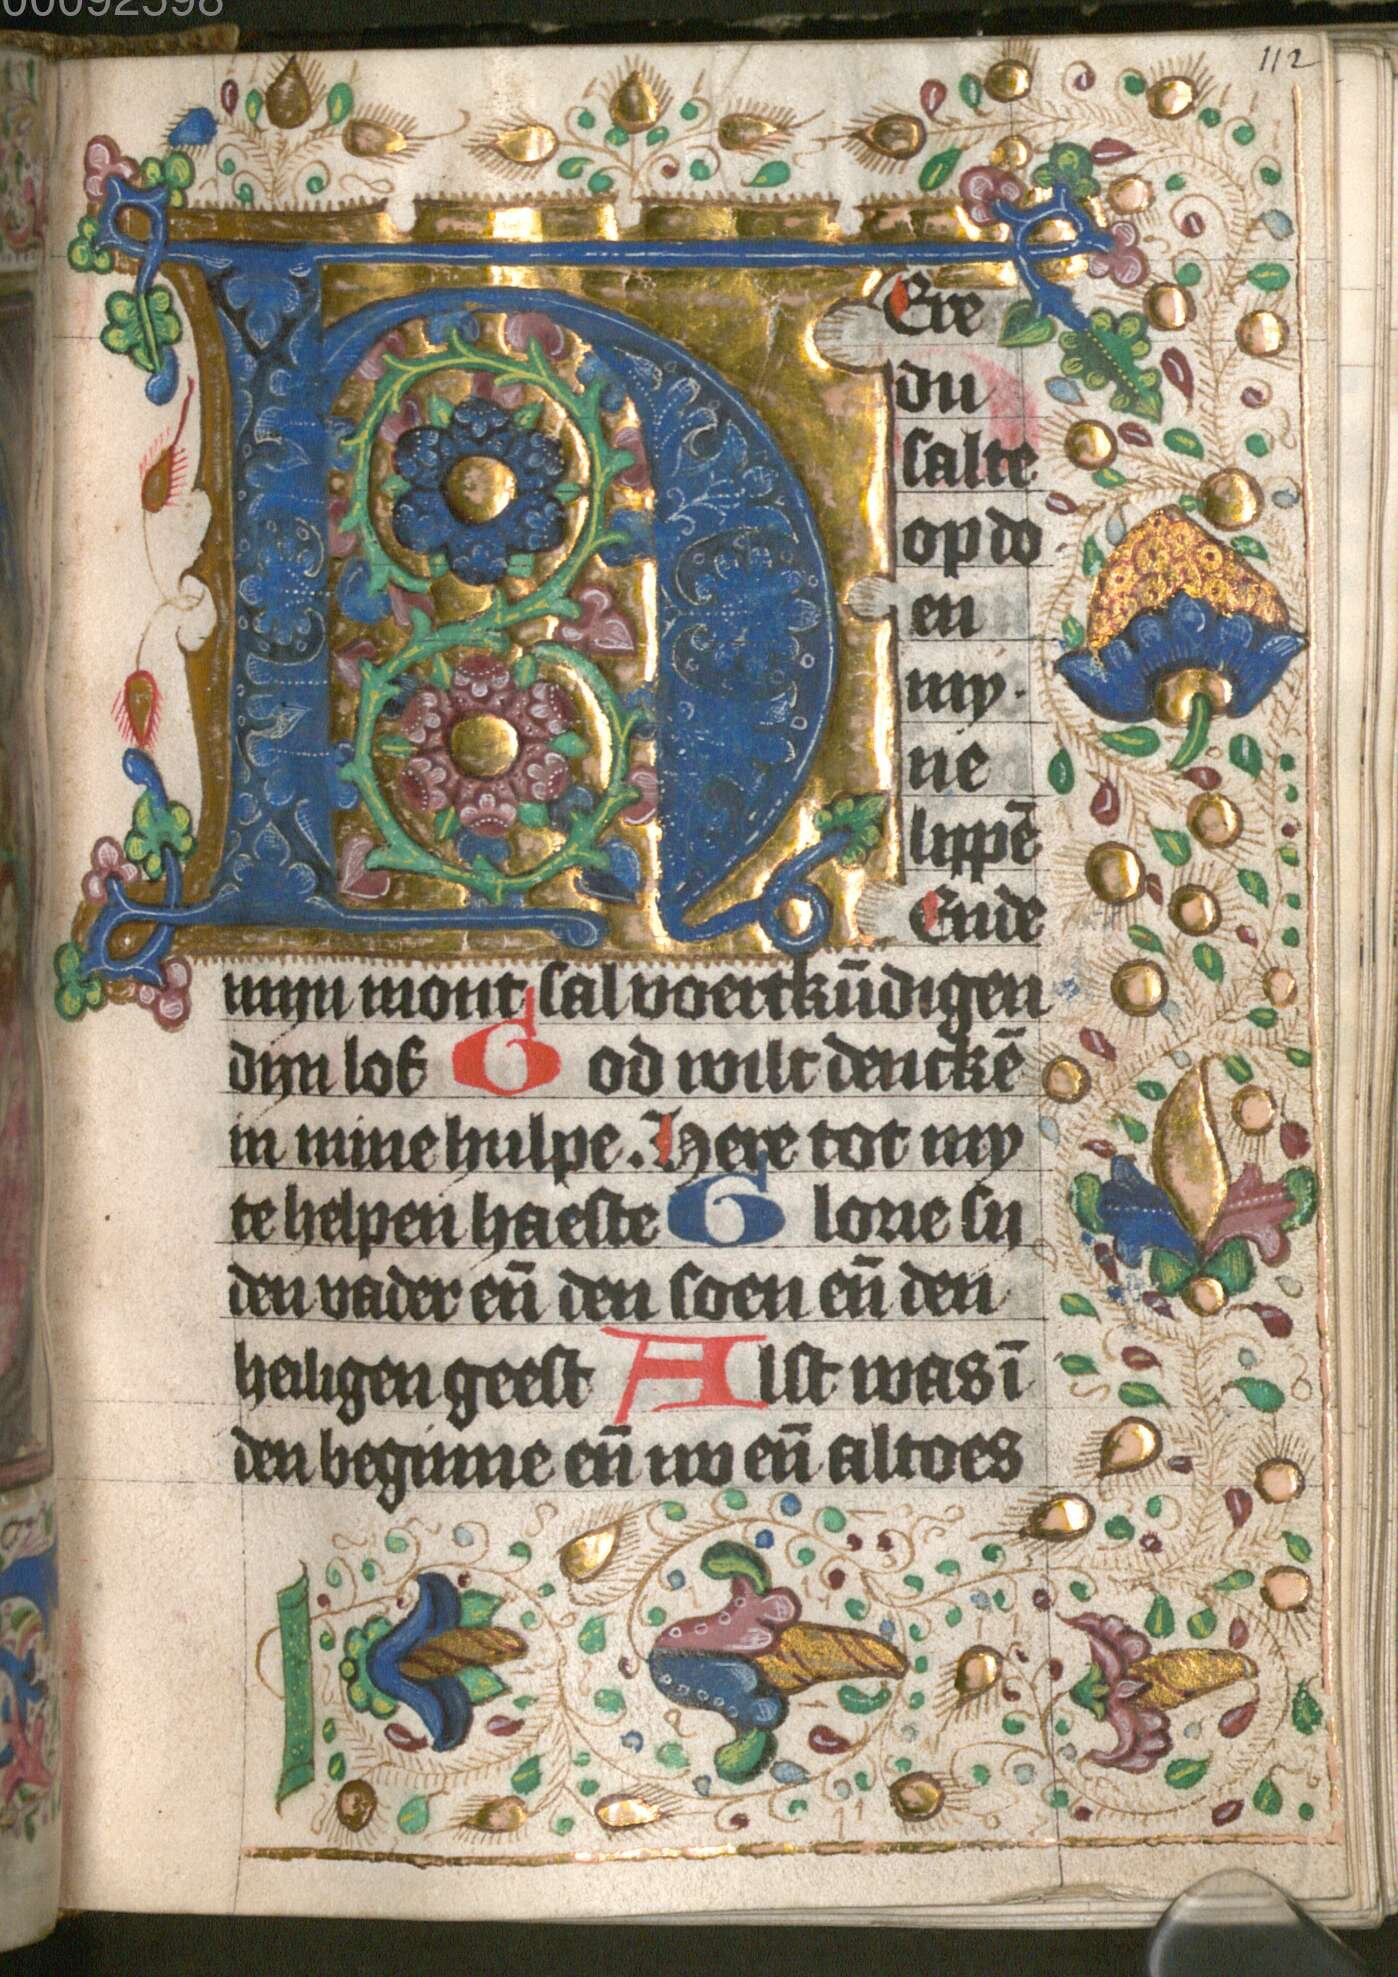 00092598
112
HEre
du
salte
opdo
en
my·
ne
lippē
Ende
mijn mont sal voertkūdigen
dijn lof God wilt denckē
in mine hulpe. Here tot my
te helpen haeste Glorie sij
den vader en̄ den soen en̄ den
heiligen geest Alst was ī
den beginne en̄ nv en̄ altoes